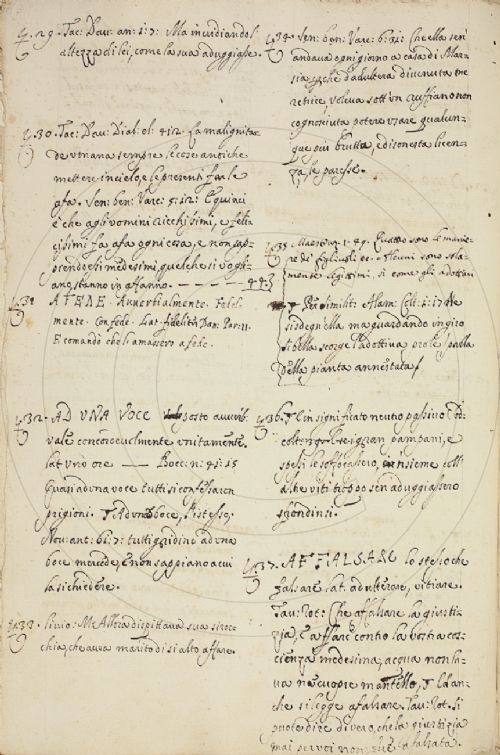 29. Tac: Dav: an: 1:7: Ma invidiandol
altezza di lei, come la sua aduggiasse.
30. Tac: Dav: Dial: ol: 412: La malignità
umana sempre le cose antiche
mettere in cielo, e le presenti far le
afa. Sen: ben: Varc: 5:12: E quinci
è che agli uomini ricchissimi, e feli-
cissimi fa afa ogni cosa, e non sap-
prendo essi medesimi, quel che si vogli-
ano, stanno in afanno. — — — — 443
31 AFEDE. Avverbialmente. Fedel-
mente. Con fede. Lat. fideliter Dan: Par: 11.
E comandò che l'amassero a fede.
32. AD UNA VOCE posto avverb.
vale concordevolmente unitamente.
lat. uno ore — Bocc: n: 41:15
Quasi ad una voce tutti si confessaron
prigioni. ¶ Ad una boce, l'istesso,
Nov: ant: 61:7: tutti gridino ad una
boce mercede, e non sappiano a cui
la si chiedere.
33. Livio: M: Allora dispettava sua siroc-
chia, che avea marito di sì alto affare.
34. Sen: ben: Varc: 6:32: Che ella sen'
andava ogni giorno a casa di Mar-
sia, che d'adultera divenuta me
retrice voleva sott' un ruffiano non
cognosciuta potere usare qualun-
que più brutta, e disonesta licen-
za, le paresse.
35. Maestruz: 1:49. Quattro sono le manie-
re de' figliuoli ec. Alcuni sono sola-
mente legittimi, si come gli adottivi
¶ Per similit: Alam: Colt: 1:17 Ne
si sdegn' ella ma guardando in giro
si bella scorge l'adottiva prole
della pianta annestata
36. ¶ in significato neutro passivo
coltengro: I pampani, e
spessi le soffocassero, insieme colle
altre viti troppo sen' aduggiassero
37. AFFALSARE lo stesso che
falsare lat. adulterare, vitiare.
Tav: Rot: Che affalsare la giusti-
zia, l'affare contro la vostra cos-
cienza medesima, acqua non la
va ne cuopre mantello, ¶ ed an-
che si legge afalsare. Tav: Rot. Si
puote dire di vero, che la giustizia
mai per voi non è afalsata.